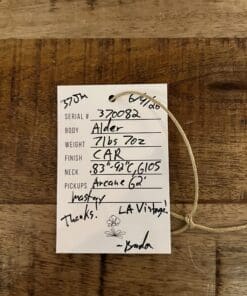 6/4/20
SERIAL # 370082
BODY Alder
WEIGHT 7lbs 7oz
FINISH CAR
NECK .83"-.92"C, 6105
PICKUPS Arcane 62'
Thanks. LA Vintage!